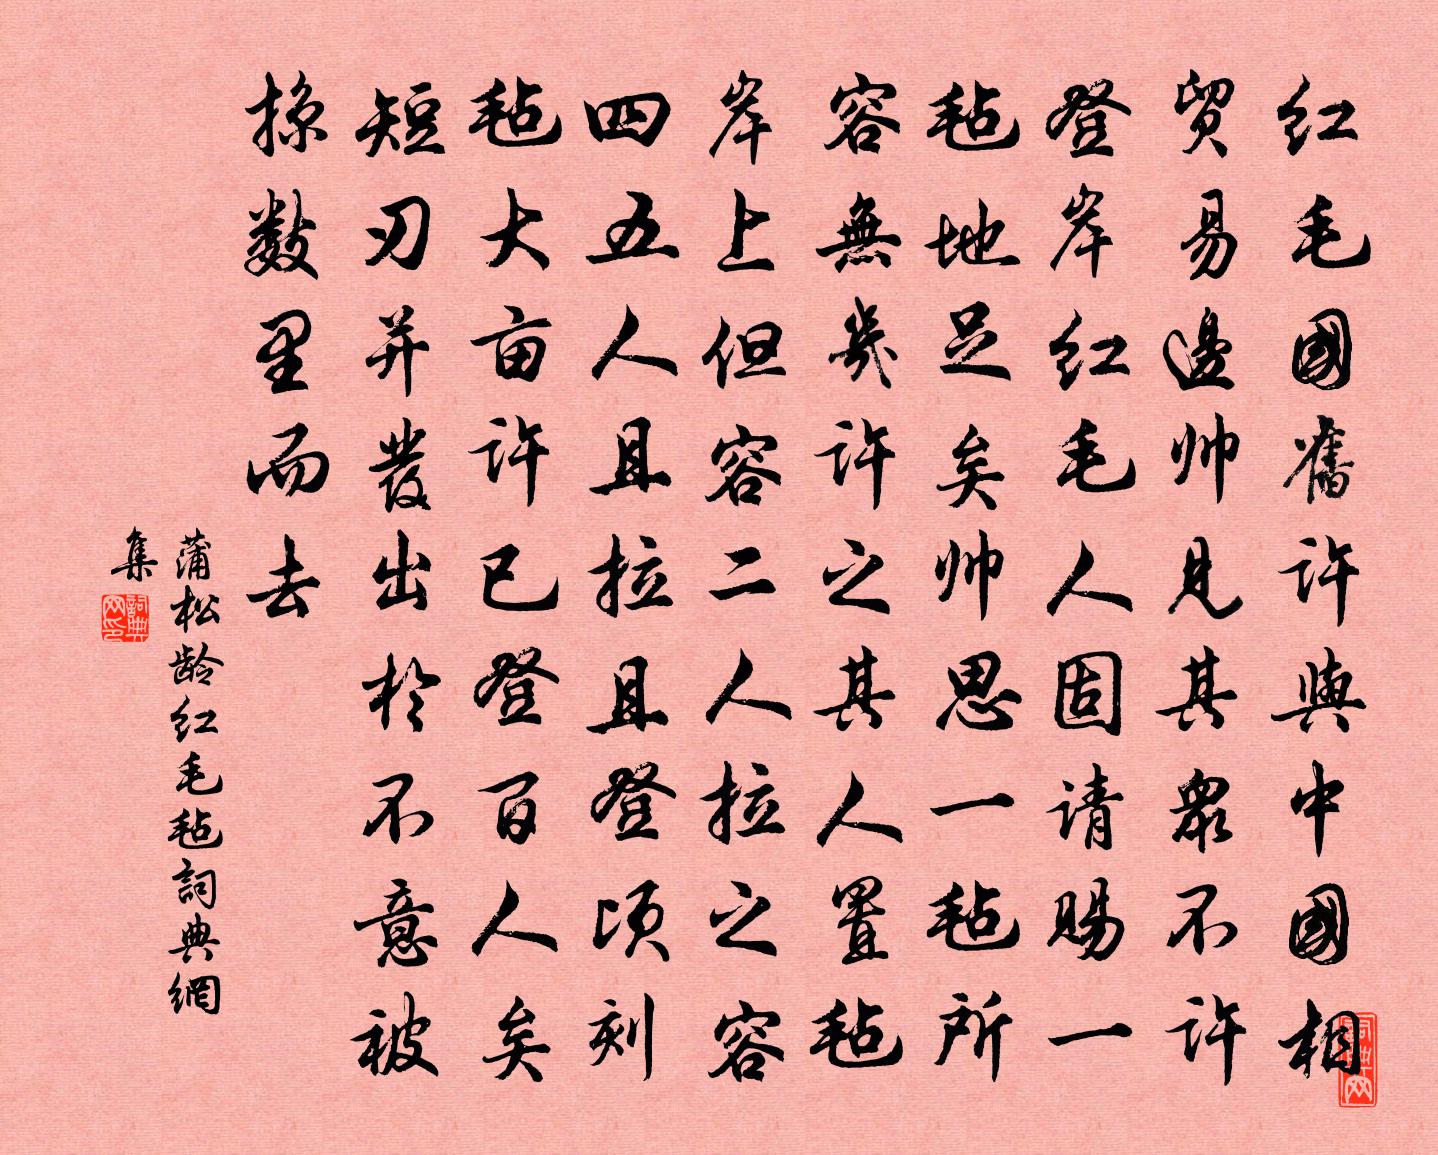 红毛國舊许與中國相
贸易邊帅見其衆不许
登岸红毛人固请赐一
毡地足矣帅思一毡所
容無幾许之其人置毡
岸上但容二人拉之容
四五人且拉且登顷刻
毡大亩许已登百人矣
短刃并發出於不意被
掠数里而去
蒲松龄红毛毡詞典網
集
詞典网印
詞典网